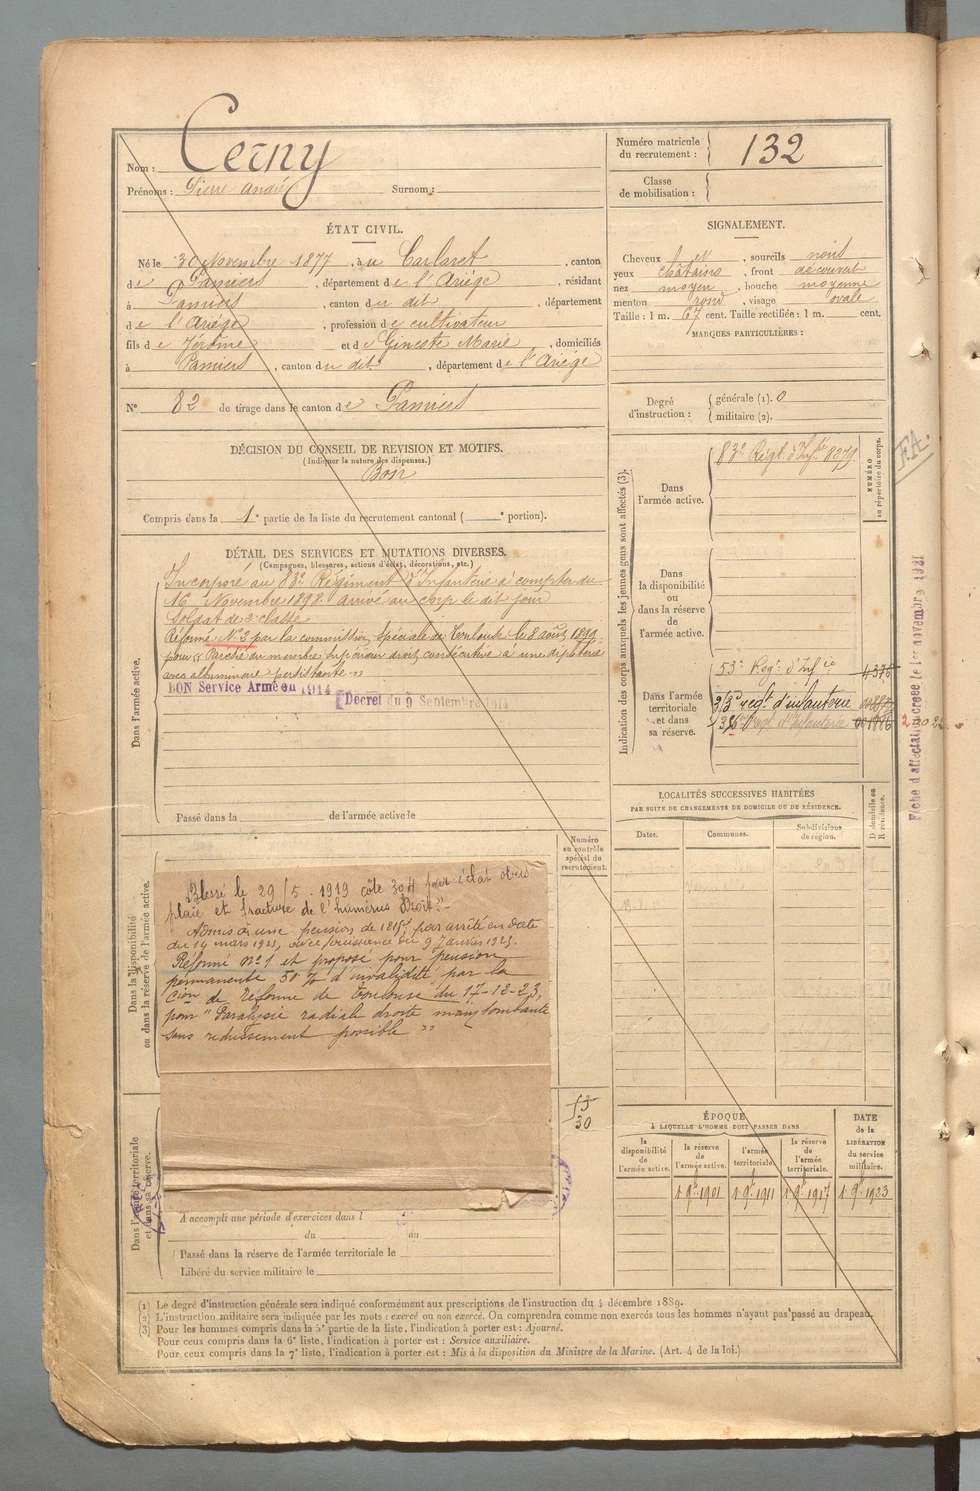 Nom : Cerny
Prénoms : Pierre André Surnom :
Numéro matricule du recrutement : 132
Classe de mobilisation :
ÉTAT CIVIL.
Né le 30 Novembre 1877, à u Carlaret, canton
de Pamiers, département de l'Ariége, résidant
à Pamiers, canton du dit, département
de l'Ariége, profession de cultivateur
fils de Jérôme et de Gineste Marie, domiciliés
à Pamiers, canton du dit, département de l'Ariége
N° 82 de tirage dans le canton de Pamiers
SIGNALEMENT.
Cheveux, sourcils noirs
yeux châtains, front découvert
nez moyen, bouche moyenne
menton rond, visage ovale
Taille : 1 m. 67 cent. Taille rectifiée : 1 m. cent.
MARQUES PARTICULIÈRES :
Degré d'instruction : générale (1). 0
militaire (2).
DÉCISION DU CONSEIL DE REVISION ET MOTIFS.
(Indiquer la nature des dispenses.)
Bon
Compris dans la 1e partie de la liste du recrutement cantonal ( e portion).
DÉTAIL DES SERVICES ET MUTATIONS DIVERSES.
(Campagnes, blessures, actions d'éclat, décorations, etc.)
Dans l'armée active.
Incorporé au 83e Régiment d'Infanterie à compter du
16 Novembre 1898. Arrivé au corp le dit jour
Soldat de 2e classe
Réformé N° 2 par la commission spéciale de Toulouse le 8 août 1899
pour " du membre supérieur droit consécutive à une diphtérie
avec albuminurie persistante "
BON Service Armé en 1914
Décret du 9 Septembre 1914
Passé dans la de l'armée active le
Indication des corps auxquels les jeunes gens sont affectés (3).
NUMÉRO au répertoire du corps.
Dans l'armée active.
83e Régt d'Infrie 8279
Dans la disponibilité ou dans la réserve de l'armée active.
Dans l'armée territoriale et dans sa réserve.
53e Régt d'Infie 4376
Regt d'infanterie
F.A.
Fiche d'affectation créée le 1er novembre 1921
LOCALITÉS SUCCESSIVES HABITÉES
PAR SUITE DE CHANGEMENTS DE DOMICILE OU DE RÉSIDENCE.
D domicile ou R résidence.
Dates. Communes. Subdivisions de région.
Dans la disponibilité ou dans la réserve de l'armée active.
Numéro au contrôle spécial du recrutement.
Blessé le 29/5.1919 côte 304 par éclat obus
plaie et fracture de l'humérus Droit.-
Admis à une pension de par arrêté en date
du 14 mars 1923, avec jouissance du 9 Janvier 1923.
Réformé n° 1 et proposé pour pension
permanente 50 % d'invalidité par la
Cion de réforme de Toulouse du 17-12-23,
pour " Paralysie radiale droite main tombante
sans redressement possible "
30
Dans l'armée territoriale et dans sa réserve.
A accompli une période d'exercices dans l
du au
Passé dans la réserve de l'armée territoriale le
Libéré du service militaire le
ÉPOQUE
À LAQUELLE L'HOMME DOIT PASSER DANS
DATE de la LIBÉRATION du service militaire.
la disponibilité de l'armée active. la réserve de l'armée active. l'armée territoriale. la réserve de l'armée territoriale.
1 9e 1901 1 9e 1911 1 9e 1917 1 9e 1923
(1) Le degré d'instruction générale sera indiqué conformément aux prescriptions de l'instruction du 4 décembre 1889.
(2) L'instruction militaire sera indiquée par les mots : exercé ou non exercé. On comprendra comme non exercés tous les hommes n'ayant pas passé au drapeau.
(3) Pour les hommes compris dans la 5e partie de la liste, l'indication à porter est : Ajourné.
Pour ceux compris dans la 6e liste, l'indication à porter est : Service auxiliaire.
Pour ceux compris dans la 7e liste, l'indication à porter est : Mis à la disposition du Ministre de la Marine. (Art. 4 de la loi.)